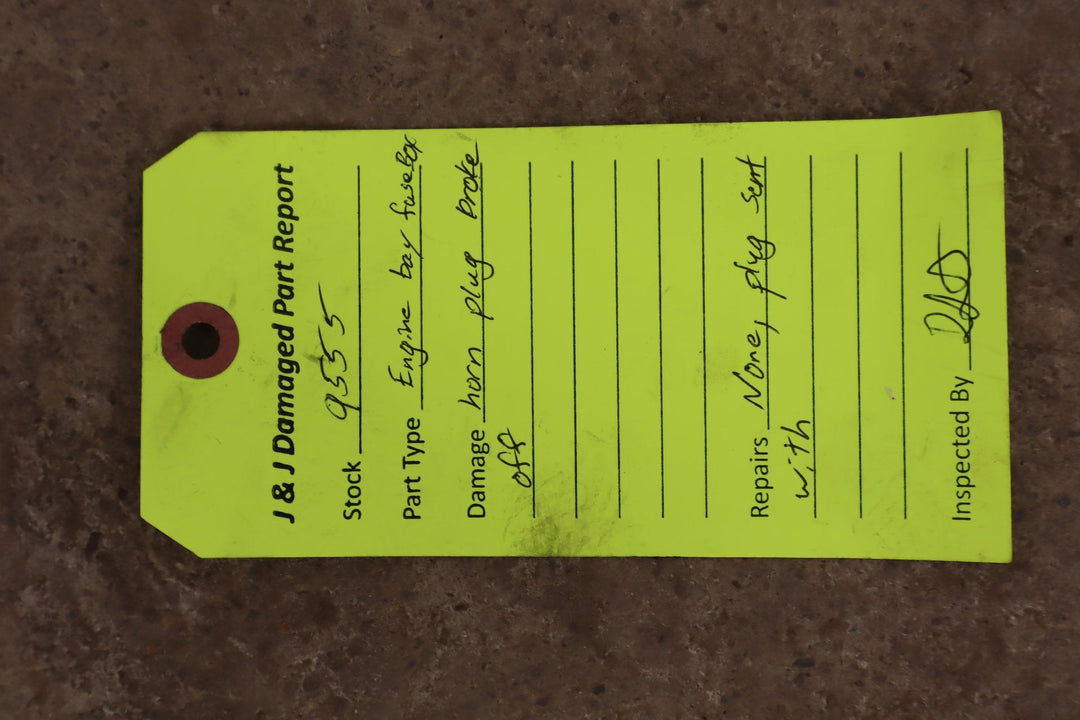 J & J Damaged Part Report
Stock 9555
Part Type Engine bay fusebox
Damage horn plug broke
off
Repairs None, plug sent
with
Inspected By